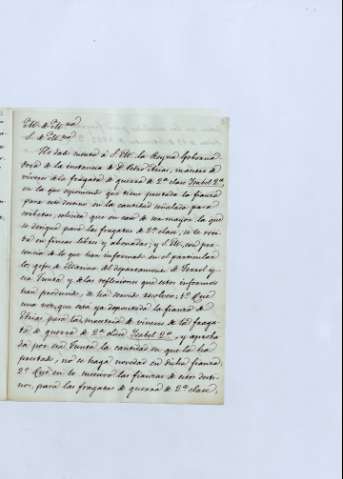 Mo. de Ma.
S. de Ma.
He dado cuenta a S. M. la Reyna Goberna
dora de la instancia de D. Pedro Arias, maestre de
viveres de la fragata de guerra de 2ª clase Ysabel 2ª
en la que exponiendo que tiene prestada la fianza
para ese destino en la cantidad señalada para
corbetas, solicita que en caso de ser mayor la que
se designe para las fragatas de 2ª clase, se le reciba
en fincas libres y abonadas; y S. M. con pre
sencia de lo que han informado en el particular
los gefes de Marina del departamento de Ferrol y
esa Junta y de las reflexiones que estos informes
han producido, se ha servido resolver: 1º Que
una vez que está ya depositada la fianza de
Arias para la maestria de viveres de la fraga
ta de guerra de 2ª clase Ysabel 2ª, y aproba
da por esa Junta la cantidad en que la ha
prestado, no se haga novedad en dicha fianza.
2º Que en lo sucesivo las fianzas de estos desti
nos, para las fragatas de guerra de 2ª clase,